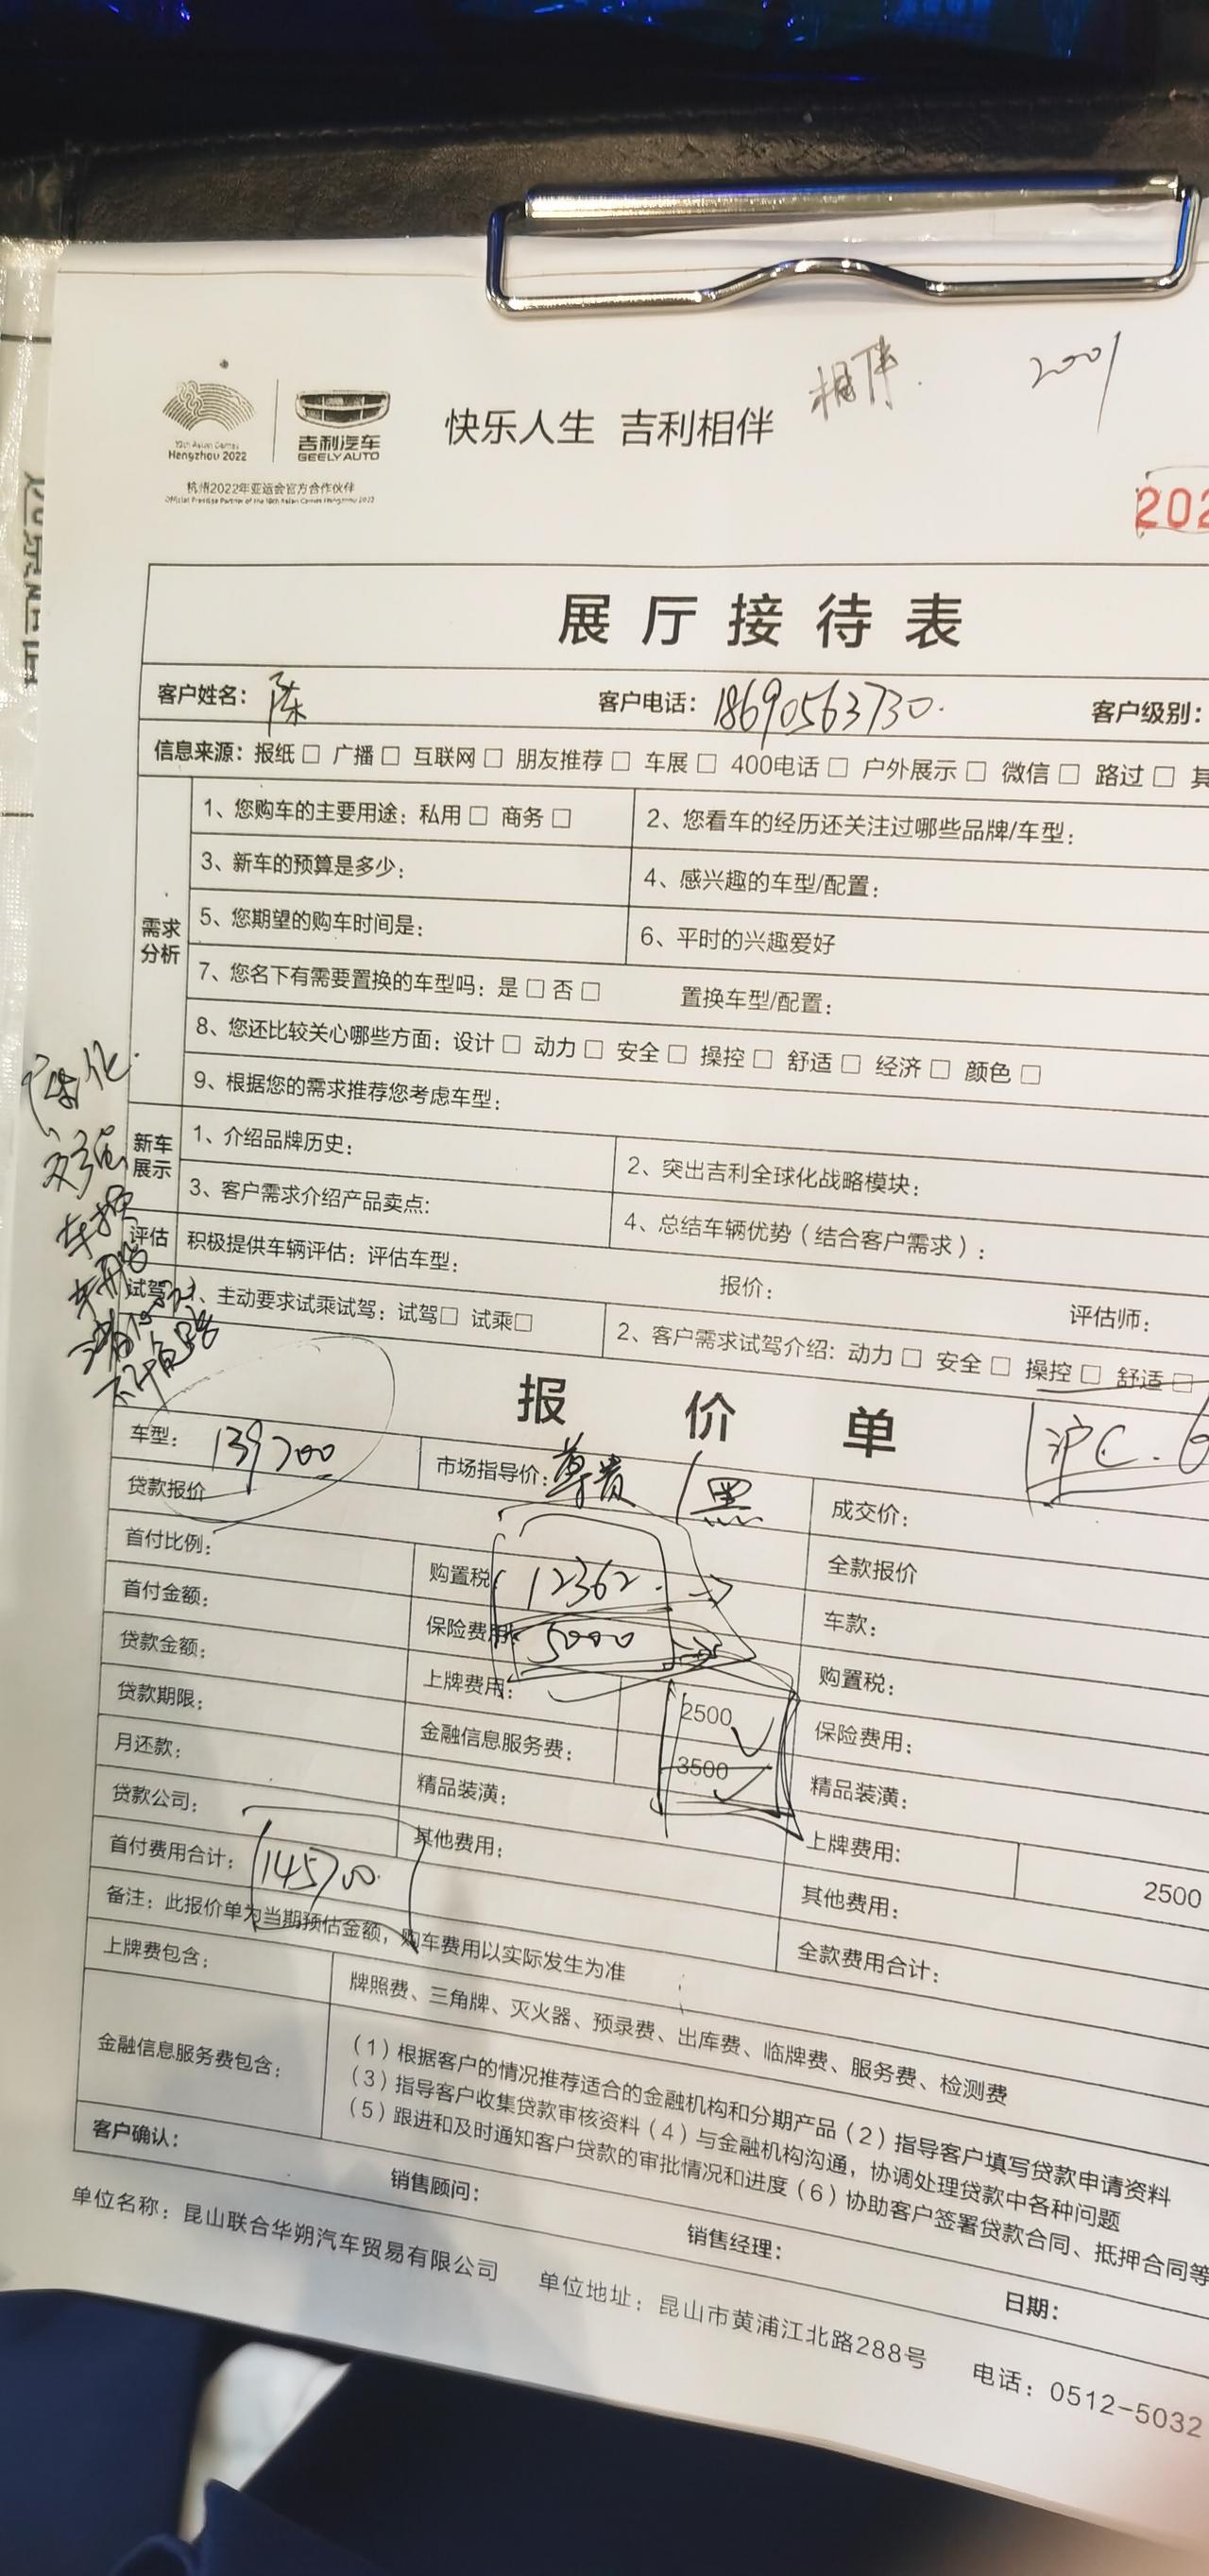 相伴 2001
19th Asian Games
Hangzhou 2022
吉利汽车
GEELY AUTO
快乐人生 吉利相伴
杭州2022年亚运会官方合作伙伴
Official Prestige Partner of the 19th Asian Games Hangzhou 2022
202
展厅接待表
客户姓名： 陈 客户电话：18690563730. 客户级别：
信息来源：报纸□ 广播□ 互联网□ 朋友推荐□ 车展□ 400电话□ 户外展示□ 微信□ 路过□ 其
需求分析
1、您购车的主要用途：私用□ 商务□
2、您看车的经历还关注过哪些品牌/车型：
3、新车的预算是多少：
4、感兴趣的车型/配置：
5、您期望的购车时间是：
6、平时的兴趣爱好
7、您名下有需要置换的车型吗：是□否□ 置换车型/配置：
8、您还比较关心哪些方面：设计□ 动力□ 安全□ 操控□ 舒适□ 经济□ 颜色□
9、根据您的需求推荐您考虑车型：
新车展示
1、介绍品牌历史：
2、突出吉利全球化战略模块：
3、客户需求介绍产品卖点：
4、总结车辆优势（结合客户需求）：
评估 积极提供车辆评估：评估车型： 报价： 评估师：
试驾 、主动要求试乘试驾：试驾□ 试乘□
2、客户需求试驾介绍：动力□ 安全□ 操控□ 舒适□
报价单
沪C.6
车型： 139700 市场指导价：尊贵 / 黑 成交价：
贷款报价 全款报价
首付比例： 购置税 12362. 车款：
首付金额： 保险费用 5000 购置税：
贷款金额： 上牌费用： 2500 保险费用：
贷款期限： 金融信息服务费： 3500 精品装潢：
月还款： 精品装潢： 上牌费用： 2500
贷款公司： 其他费用： 其他费用：
首付费用合计： 145700. 全款费用合计：
备注：此报价单为当期预估金额，购车费用以实际发生为准
上牌费包含： 牌照费、三角牌、灭火器、预录费、出库费、临牌费、服务费、检测费
金融信息服务费包含：
（1）根据客户的情况推荐适合的金融机构和分期产品（2）指导客户填写贷款申请资料
（3）指导客户收集贷款审核资料（4）与金融机构沟通，协调处理贷款中各种问题
（5）跟进和及时通知客户贷款的审批情况和进度（6）协助客户签署贷款合同、抵押合同等
客户确认： 销售顾问： 销售经理： 日期：
单位名称：昆山联合华朔汽车贸易有限公司 单位地址：昆山市黄浦江北路288号 电话：0512-5032